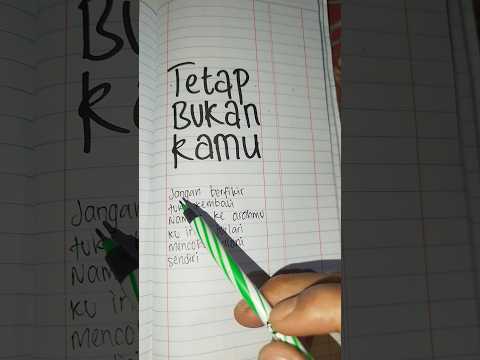 Tetap
BUKan
Kamu
Jangan berfikir
tuk kembali
Nam ke arahmu
Ku in lari
menco
Sendiri